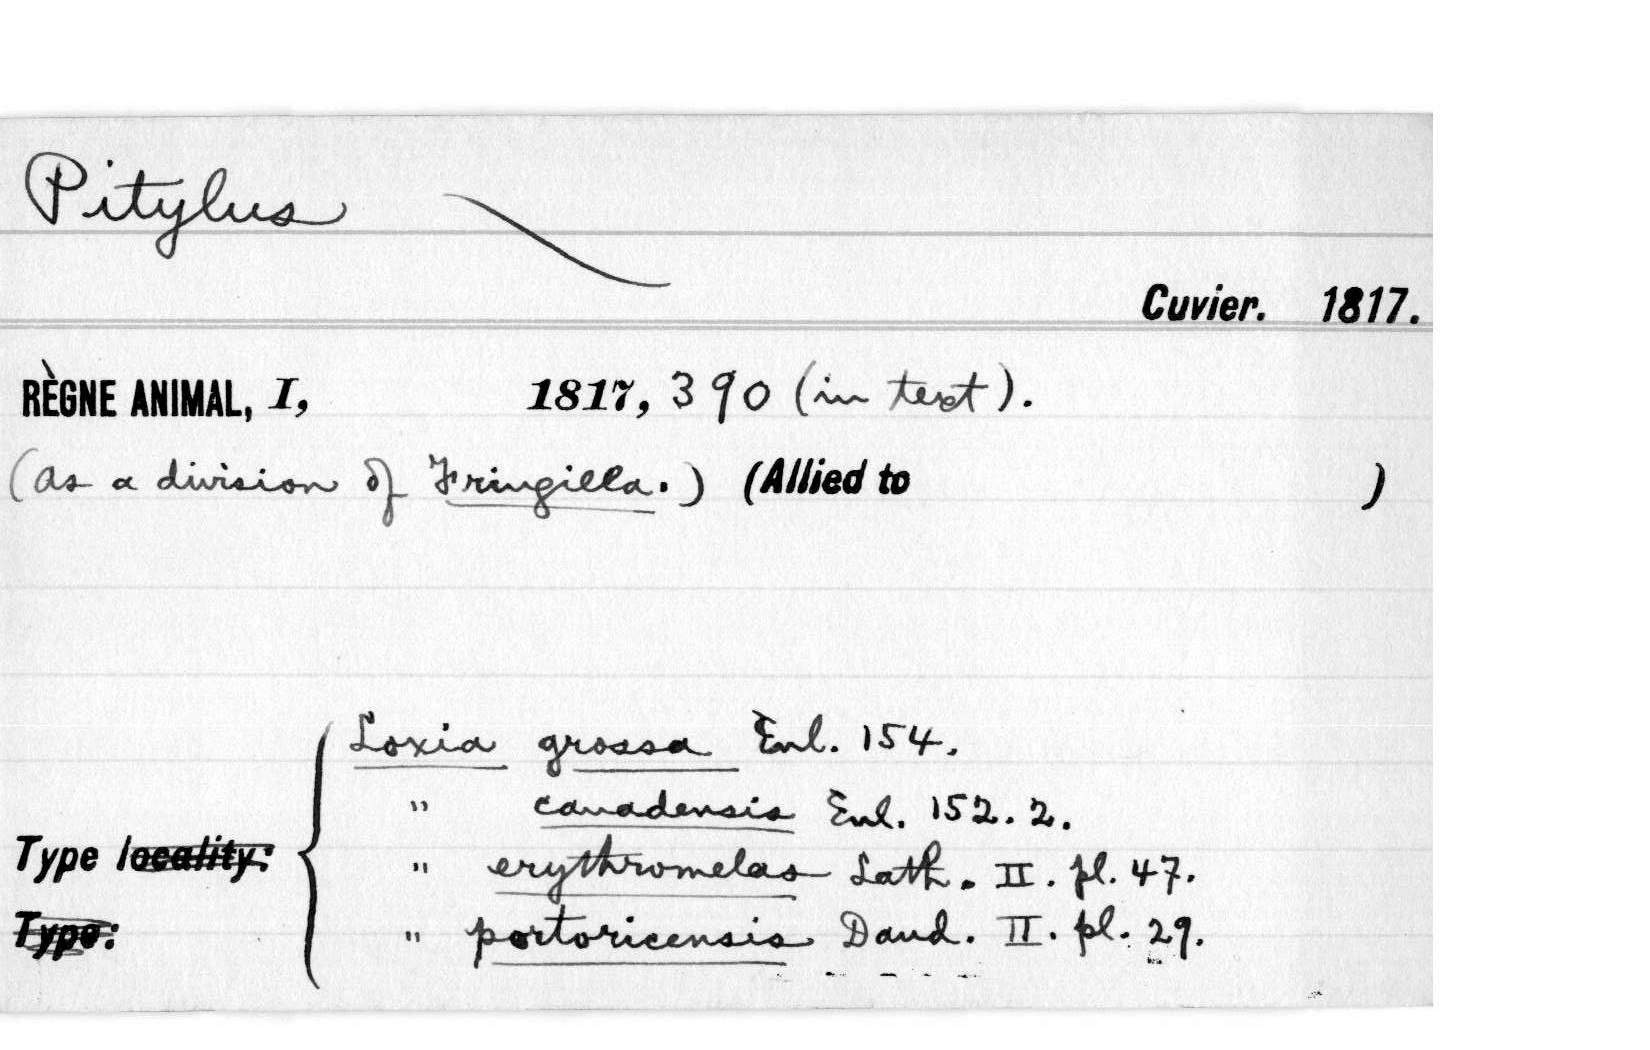 Pitylus
Cuvier. 1817.
RÈGNE ANIMAL, I, 1817, 390 (in text).
(as a division of Fringilla.) (Allied to )
Loxia grossa Enl. 154.
" canadensis Enl. 152. 2.
Type locality:
" erythromelas Lath. II. pl. 47.
Type:
" portoricensis Daud. II. pl. 29.